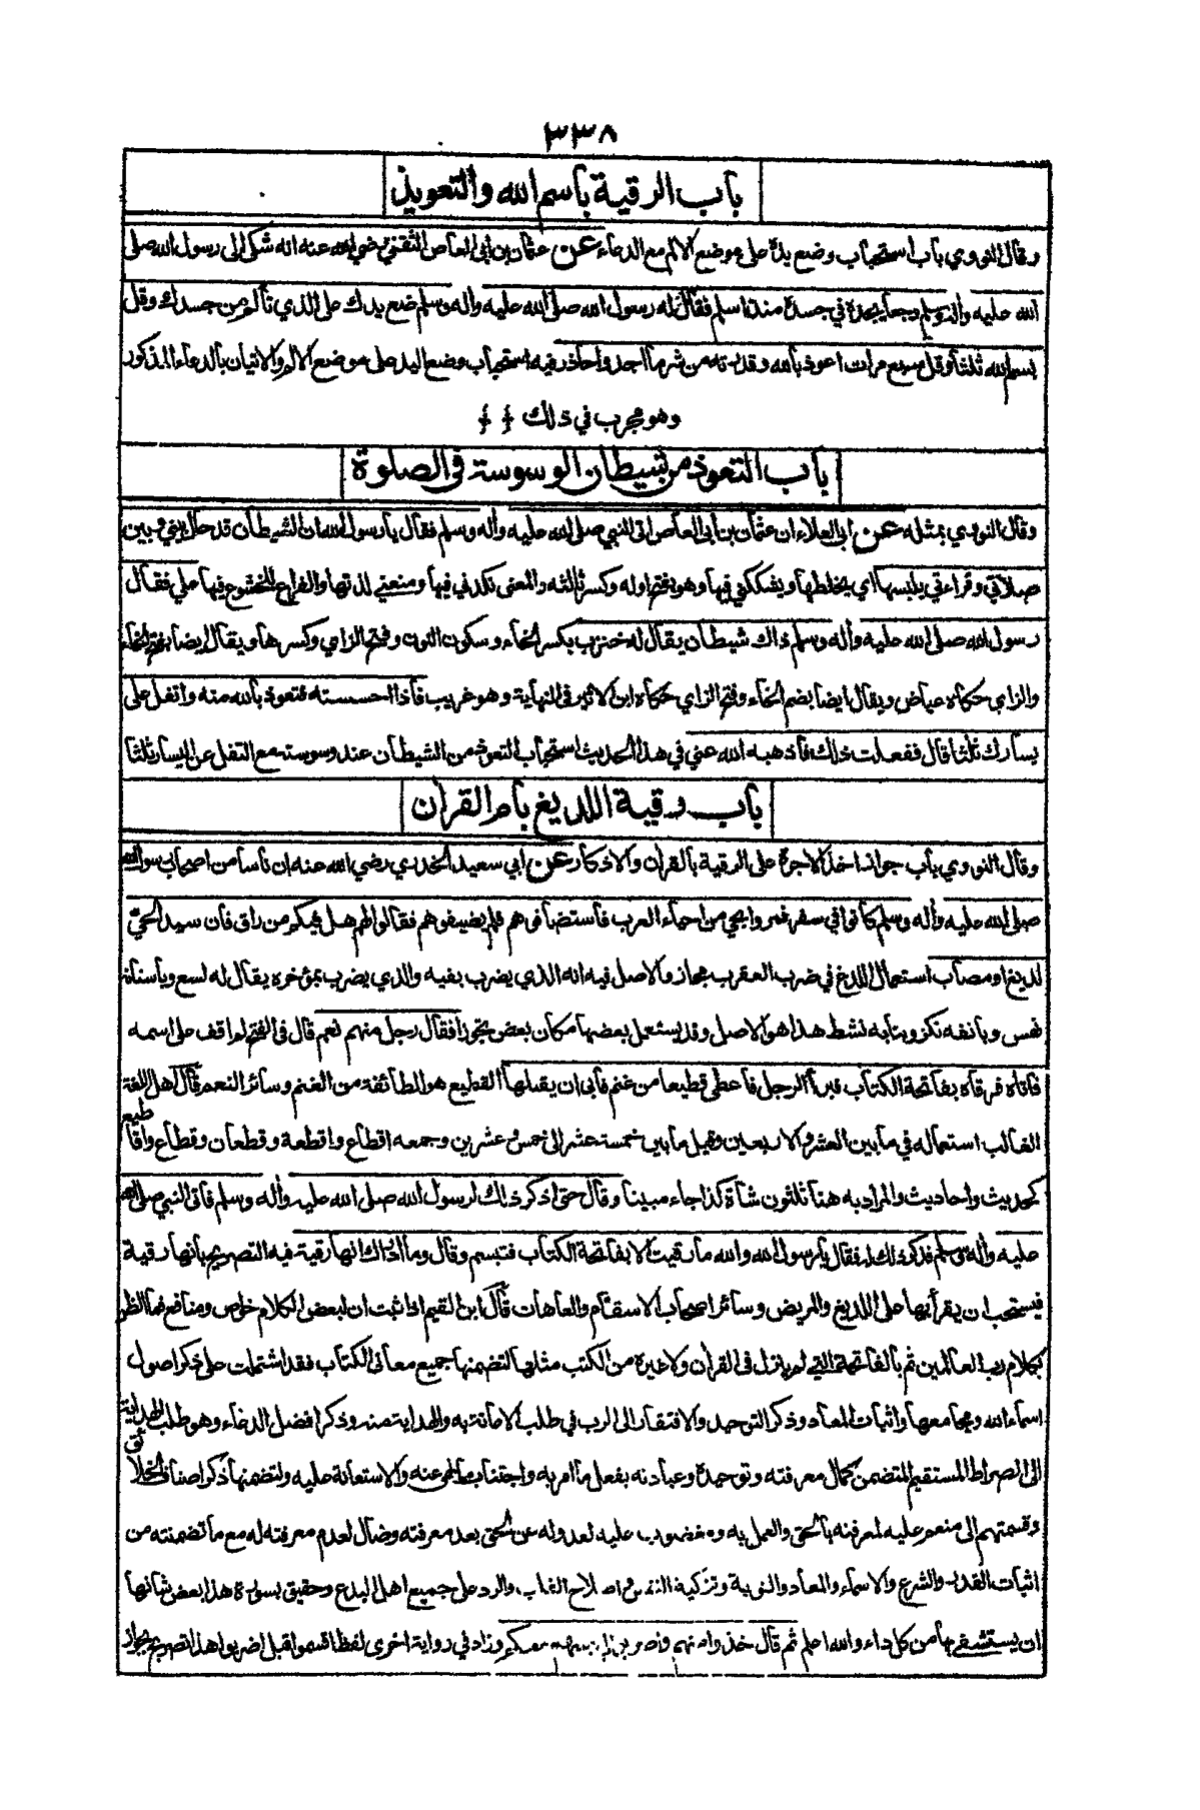 ٣٣٨
باب الرقية بأسم الله والتعويذ
وقال النووي باب استحباب وضع يده على موضع الالم مع الدعاء عن عثمان بن ابي العاص الثقفي رضي الله عنه انه شكى الى رسول الله صلى
الله عليه واله وسلم وجعا يجده في جسده منذ اسلم فقال له رسول الله صلى الله عليه واله وسلم ضع يدك على الذي تألم من جسدك وقل
بسم الله ثلثا وقل سبع مرات اعوذ بالله وقدرته من شر ما اجد واحاذر فيه استحباب وضع اليد على موضع الالم والاتيان بالدعاء المذكور
وهو مجرب في ذلك
باب التعوذ من شيطان الوسوسة فى الصلوة
وقال النووي بمثله عن ابي العلاء ان عثمان بن ابي العاص اتى النبي صلى الله عليه واله وسلم فقال يا رسول الله ان الشيطان قد حال بيني وبين
صلاتي وقراءتي يلبسها اي يخلطها ويشككني فيها وهو بفتح اوله وكسر ثالثه والمعنى نكدني فيها ومنعني لذتها والفراغ للخشوع فيها علي فقال
رسول الله صلى الله عليه واله وسلم ذاك شيطان يقال له خنزب بكسر الخاء وسكون النون وفتح الزاي وكسرها ويقال ايضا بفتح الخاء
والزاي حكاه عياض ويقال ايضا بضم الخاء وفتح الزاي حكاه ابن الاثير فى النهاية وهو غريب فاذا احسسته فتعوذ بالله منه واتفل على
يسارك ثلثا قال ففعلت ذلك فأذهبه الله عني في هذا الحديث استحباب التعوذ من الشيطان عند وسوسته مع التفل عن اليسار ثلثا
باب رقية اللديغ بأم القران
وقال النووي باب جواز اخذ الاجرة على الرقية بالقران والاذكار عن ابي سعيد الخدري رضي الله عنه ان ناسا من اصحاب رسول الله
صلى الله عليه واله وسلم كانوا في سفر فمروا بحي من احياء العرب فأستضافوهم فلم يضيفوهم فقالوا لهم هل فيكم من راق فان سيد الحي
لديغ او مصاب استعمال اللدغ في ضرب العقرب مجاز والاصل فيه انه الذي يضرب بفيه والذي يضرب بمؤخره يقال له لسع وبأسنانه
نهس وبأنفه نكز وبنابه نشط هذا هو الاصل وقد يستعمل بعضها مكان بعض تجوزا فقال رجل منهم نعم قال فى الفتح لم اقف على اسمه
فاتاه فرقاه بفاتحة الكتاب فبرأ الرجل فاعطى قطيعا من غنم فأبى ان يقبلها القطيع هو الطائفة من الغنم وسائر النعم قال اهل اللغة
الغالب استعماله في ما بين العشر والاربعين وقيل ما بين خمسة عشر الى خمس وعشرين وجمعه اقطاع واقطعة وقطعان وقطاع واقاطيع
كحديث واحاديث والمراد به هنا ثلثون شاة كذا جاء مبينا وقال حتى اذكر ذلك لرسول الله صلى الله عليه واله وسلم فاتى النبي صلى الله
عليه واله وسلم فذكر ذلك له فقال يا رسول الله والله ما رقيت الا بفاتحة الكتاب فتبسم وقال وما ادراك انها رقية فيه التصريح بأنها رقية
فيستحب ان يقرأ بها على اللديغ والمريض وسائر اصحاب الاسقام والعاهات قال ابن القيم اذا ثبت ان لبعض الكلام خواص ومنافع فما الظن
بكلام رب العالمين ثم بالفاتحة التي لم ينزل فى القران ولا غيره من الكتب مثلها لتضمنها جميع معانى الكتاب فقد اشتملت على ذكر اصول
اسماء الله ومجامعها واثبات المعاد وذكر التوحيد والافتقار الى الرب في طلب الاعانة به والهداية منه وذكر افضل الدعاء وهو طلب الهداية
الى الصراط المستقيم المتضمن كمال معرفته وتوحيده وعبادته بفعل ما امر به واجتناب ما نهى عنه والاستعانة عليه ولتضمنها ذكر اصناف الخلائق
وقسمتهم الى منعم عليه لمعرفته بالحق والعمل به ومغضوب عليه لعدوله عن الحق بعد معرفته وضال لعدم معرفته له مع ما تضمنته من
اثبات القدر والشرع والاسماء والمعاد والتوبة وتزكية النفس واصلاح القلب والرد على جميع اهل البدع وحقيق بسورة هذا بعض شانها
ان يستشفى بها من كل داء والله اعلم ثم قال خذوا منهم واضربوا لي بسهم معكم وزاد في رواية اخرى لفظ اقسموا قبل اضربوا هذا تصريح بجواز